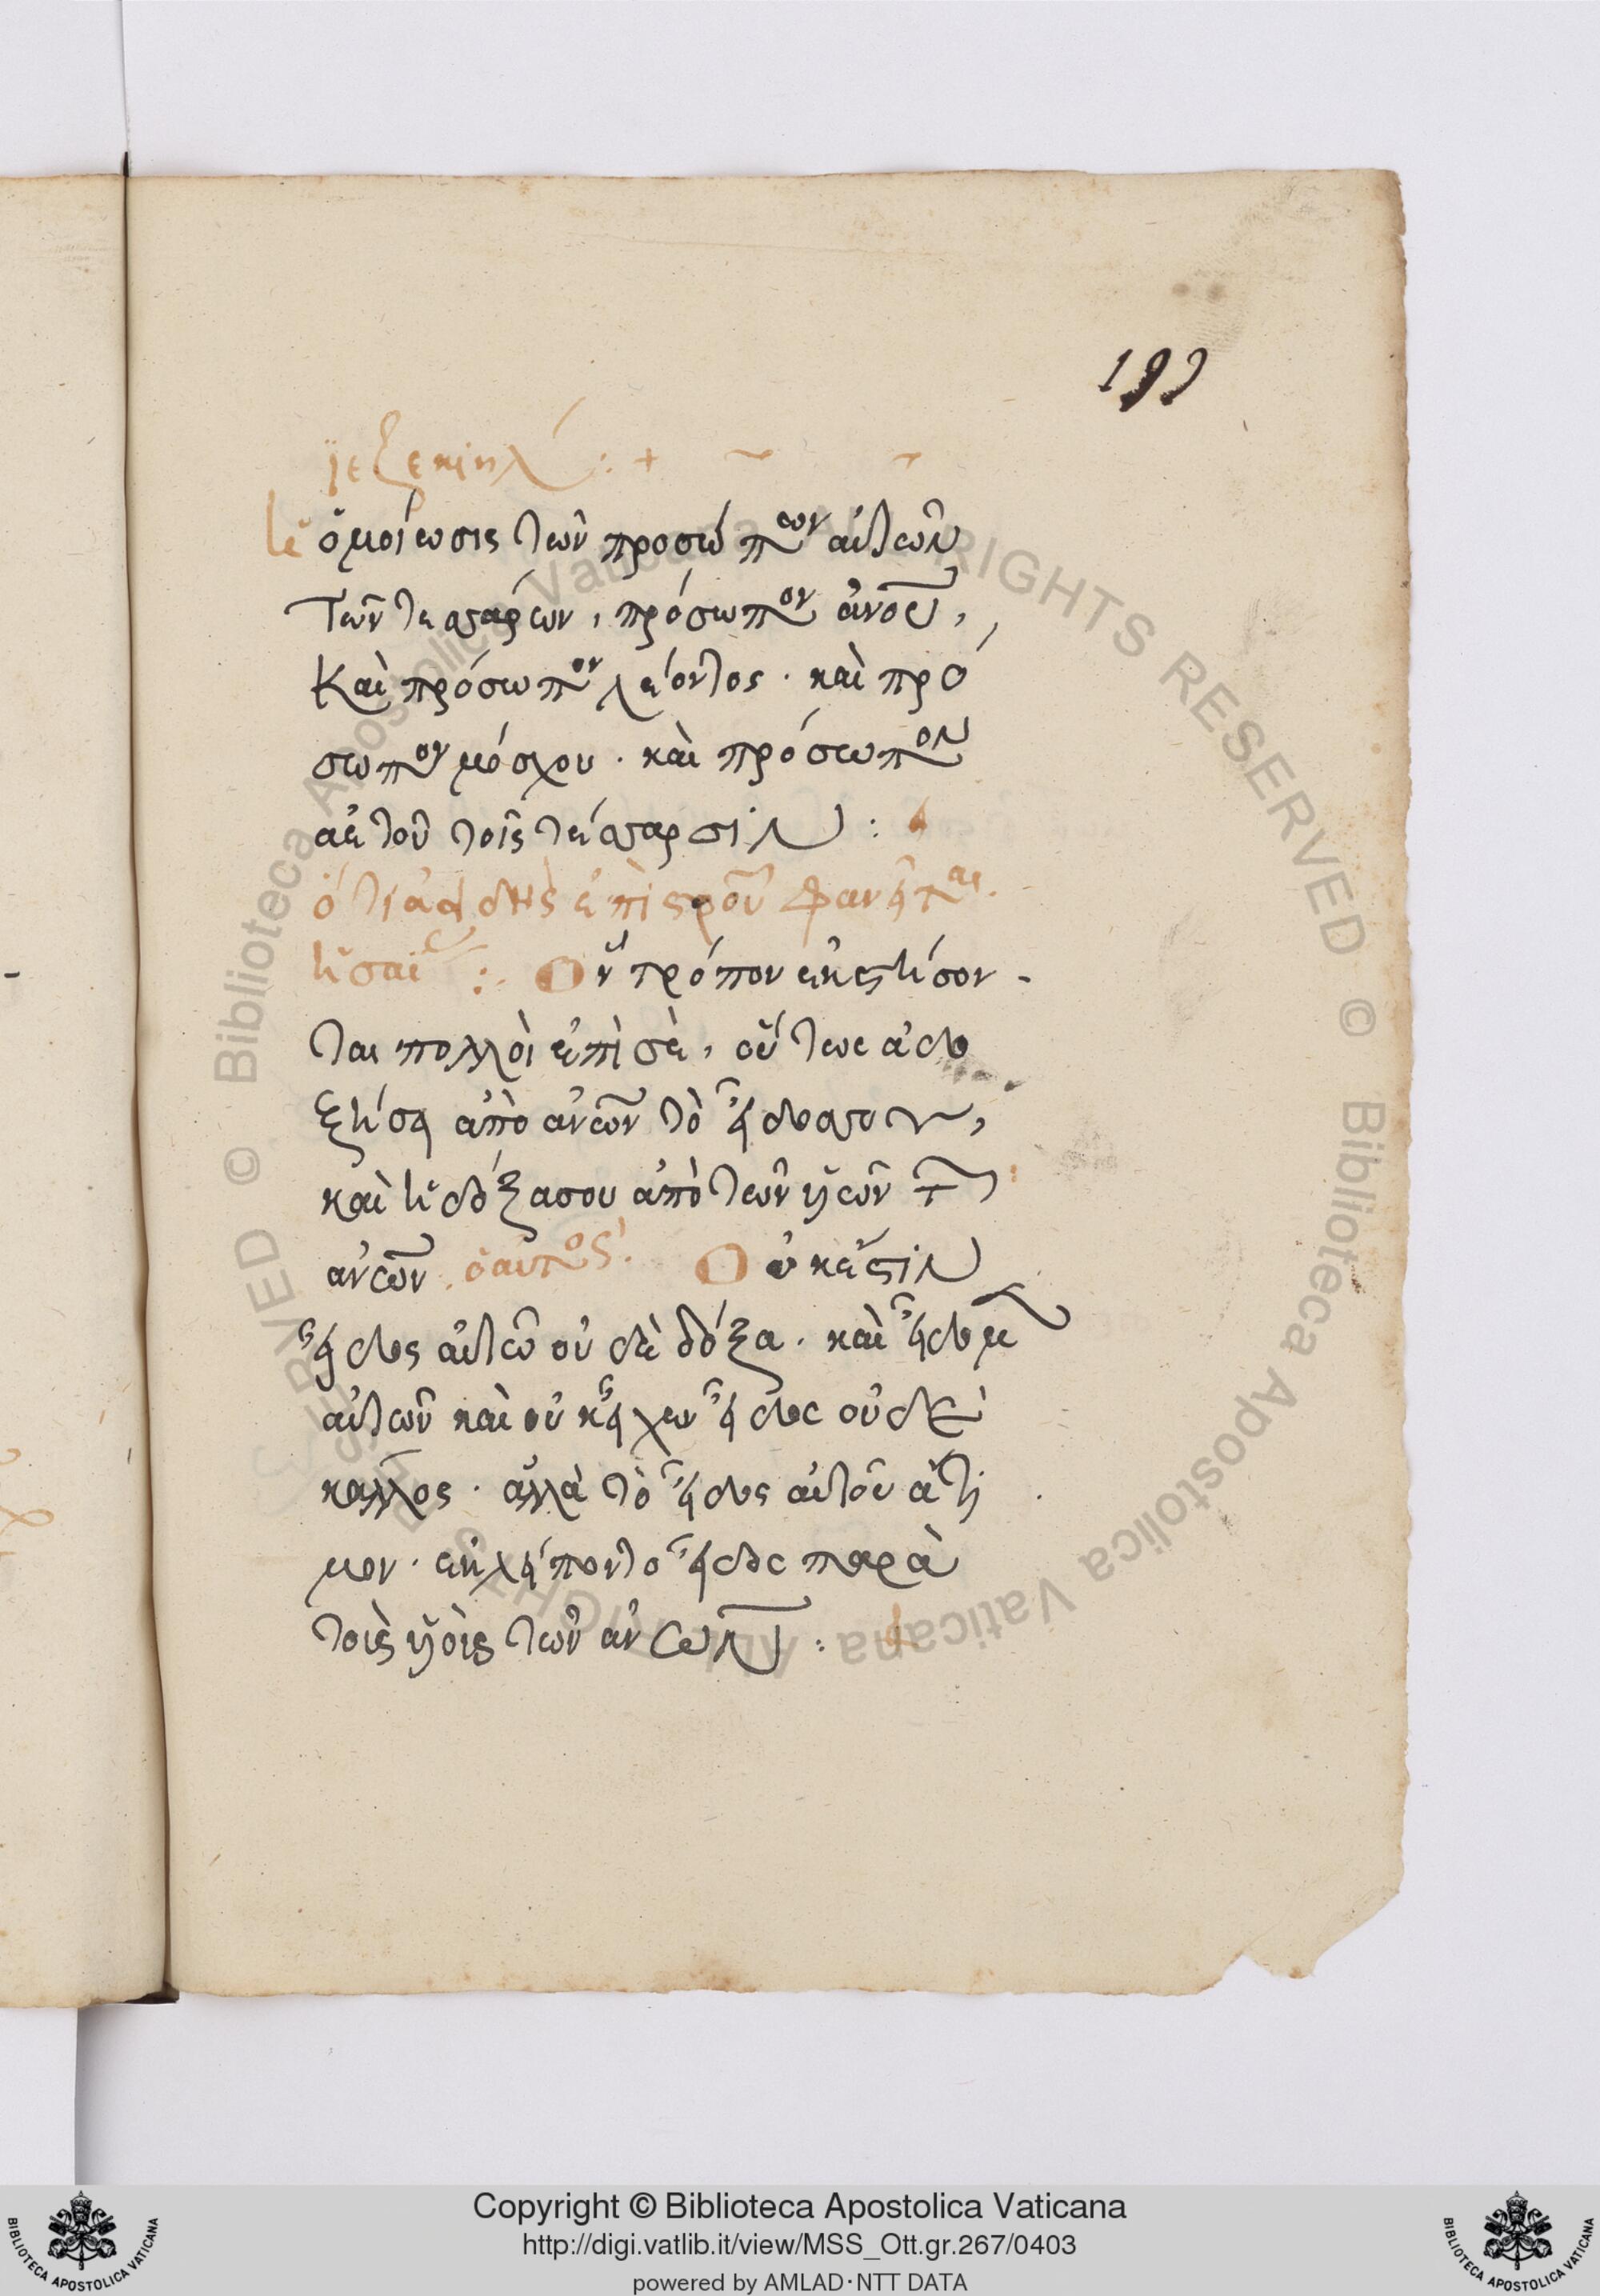 199
ἰεζεκιήλ :+
ἡ ὁμοίωσις τῶν προσώπων αὐτῶν
τῶν τεσσάρων, πρόσωπον ἀνου,
Καὶ πρόσωπον λέοντος · καὶ πρό
σωπον μόσχου · καὶ πρόσωπον
ἀετοῦ τοῖς τέσσαρσιν :
ὅτι ἀειδὴς ἐπὶ σροῦ φανεῖται.
ἡσαΐου :· Ὃν τρόπον ἐκστήσον-
ται πολλοὶ ἐπὶ σὲ, οὕτως ἀδο
ξήσει ἀπὸ ἀνων τὸ εἶδος σου,
καὶ ἡ δόξα σου ἀπὸ τῶν υἱῶν τ
ἀνων. ὁ αυτος. Οὐκ ἔστιν
εἶδος αὐτῶ οὐδὲ δόξα · καὶ εἴδομ
αὐτὸν καὶ οὐκ εἶχεν εἶδος οὐδὲ
κάλλος · ἀλλὰ τὸ εἶδος αὐτοῦ ἄτι
μον · ἐκλείπον τὸ εἶδος παρὰ
τοὺς υἱοὺς τῶν ἀνων :
Copyright © Biblioteca Apostolica Vaticana
http://digi.vatlib.it/view/MSS_Ott.gr.267/0403
powered by AMLAD·NTT DATA
BIBLIOTECA APOSTOLICA VATICANA
BIBLIOTECA APOSTOLICA VATICANA
© Biblioteca Apostolica Vaticana ALL RIGHTS RESERVED © Biblioteca Apostolica Vaticana ALL RIGHTS RESERVED